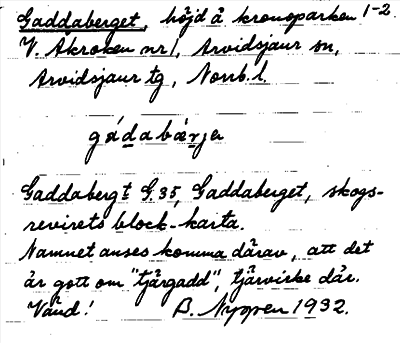 Gaddaberget, höjd å kronoparken 1-2
V. Åkroken nr 1, Arvidsjaur sn,
Arvidsjaur tg, Norrb. l.
gádabærje
Gaddabergt G.35, Gaddaberget, skogs-
revirets block-karta.
Namnet anses komma därav, att det
är gott om "tjärgadd", tjärvirke där.
Vänd! B. Nyppen 1932.